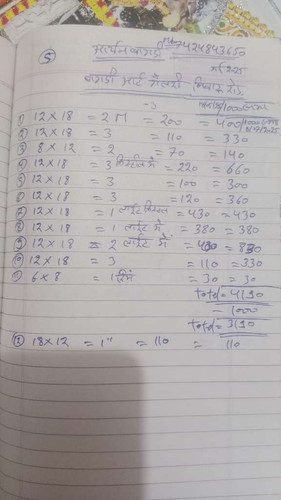 ⑤ Mo 7424843650
बागड़ी आर्ट गैलरी
① 12 × 18 = 2 M = 200 = 400
② 12 × 18 = 3 = 110 = 330
③ 8 × 12 = 2 = 70 = 140
④ 12 × 18 = 3 = 220 = 660
⑤ 12 × 18 = 3 = 100 = 300
⑥ 12 × 18 = 3 = 120 = 360
⑦ 12 × 18 = 1 लाईट = 430 = 430
⑧ 12 × 18 = 1 लाईट में = 380 = 380
⑨ 12 × 18 = 2 लाईट में
⑩ 12 × 18 = 3 = 110 = 330
⑪ 6 × 8 = 1 = 30 = 30
total = 4190
- 1000
total = 3190
⑫ 18 × 12 = 1" = 110 = 110